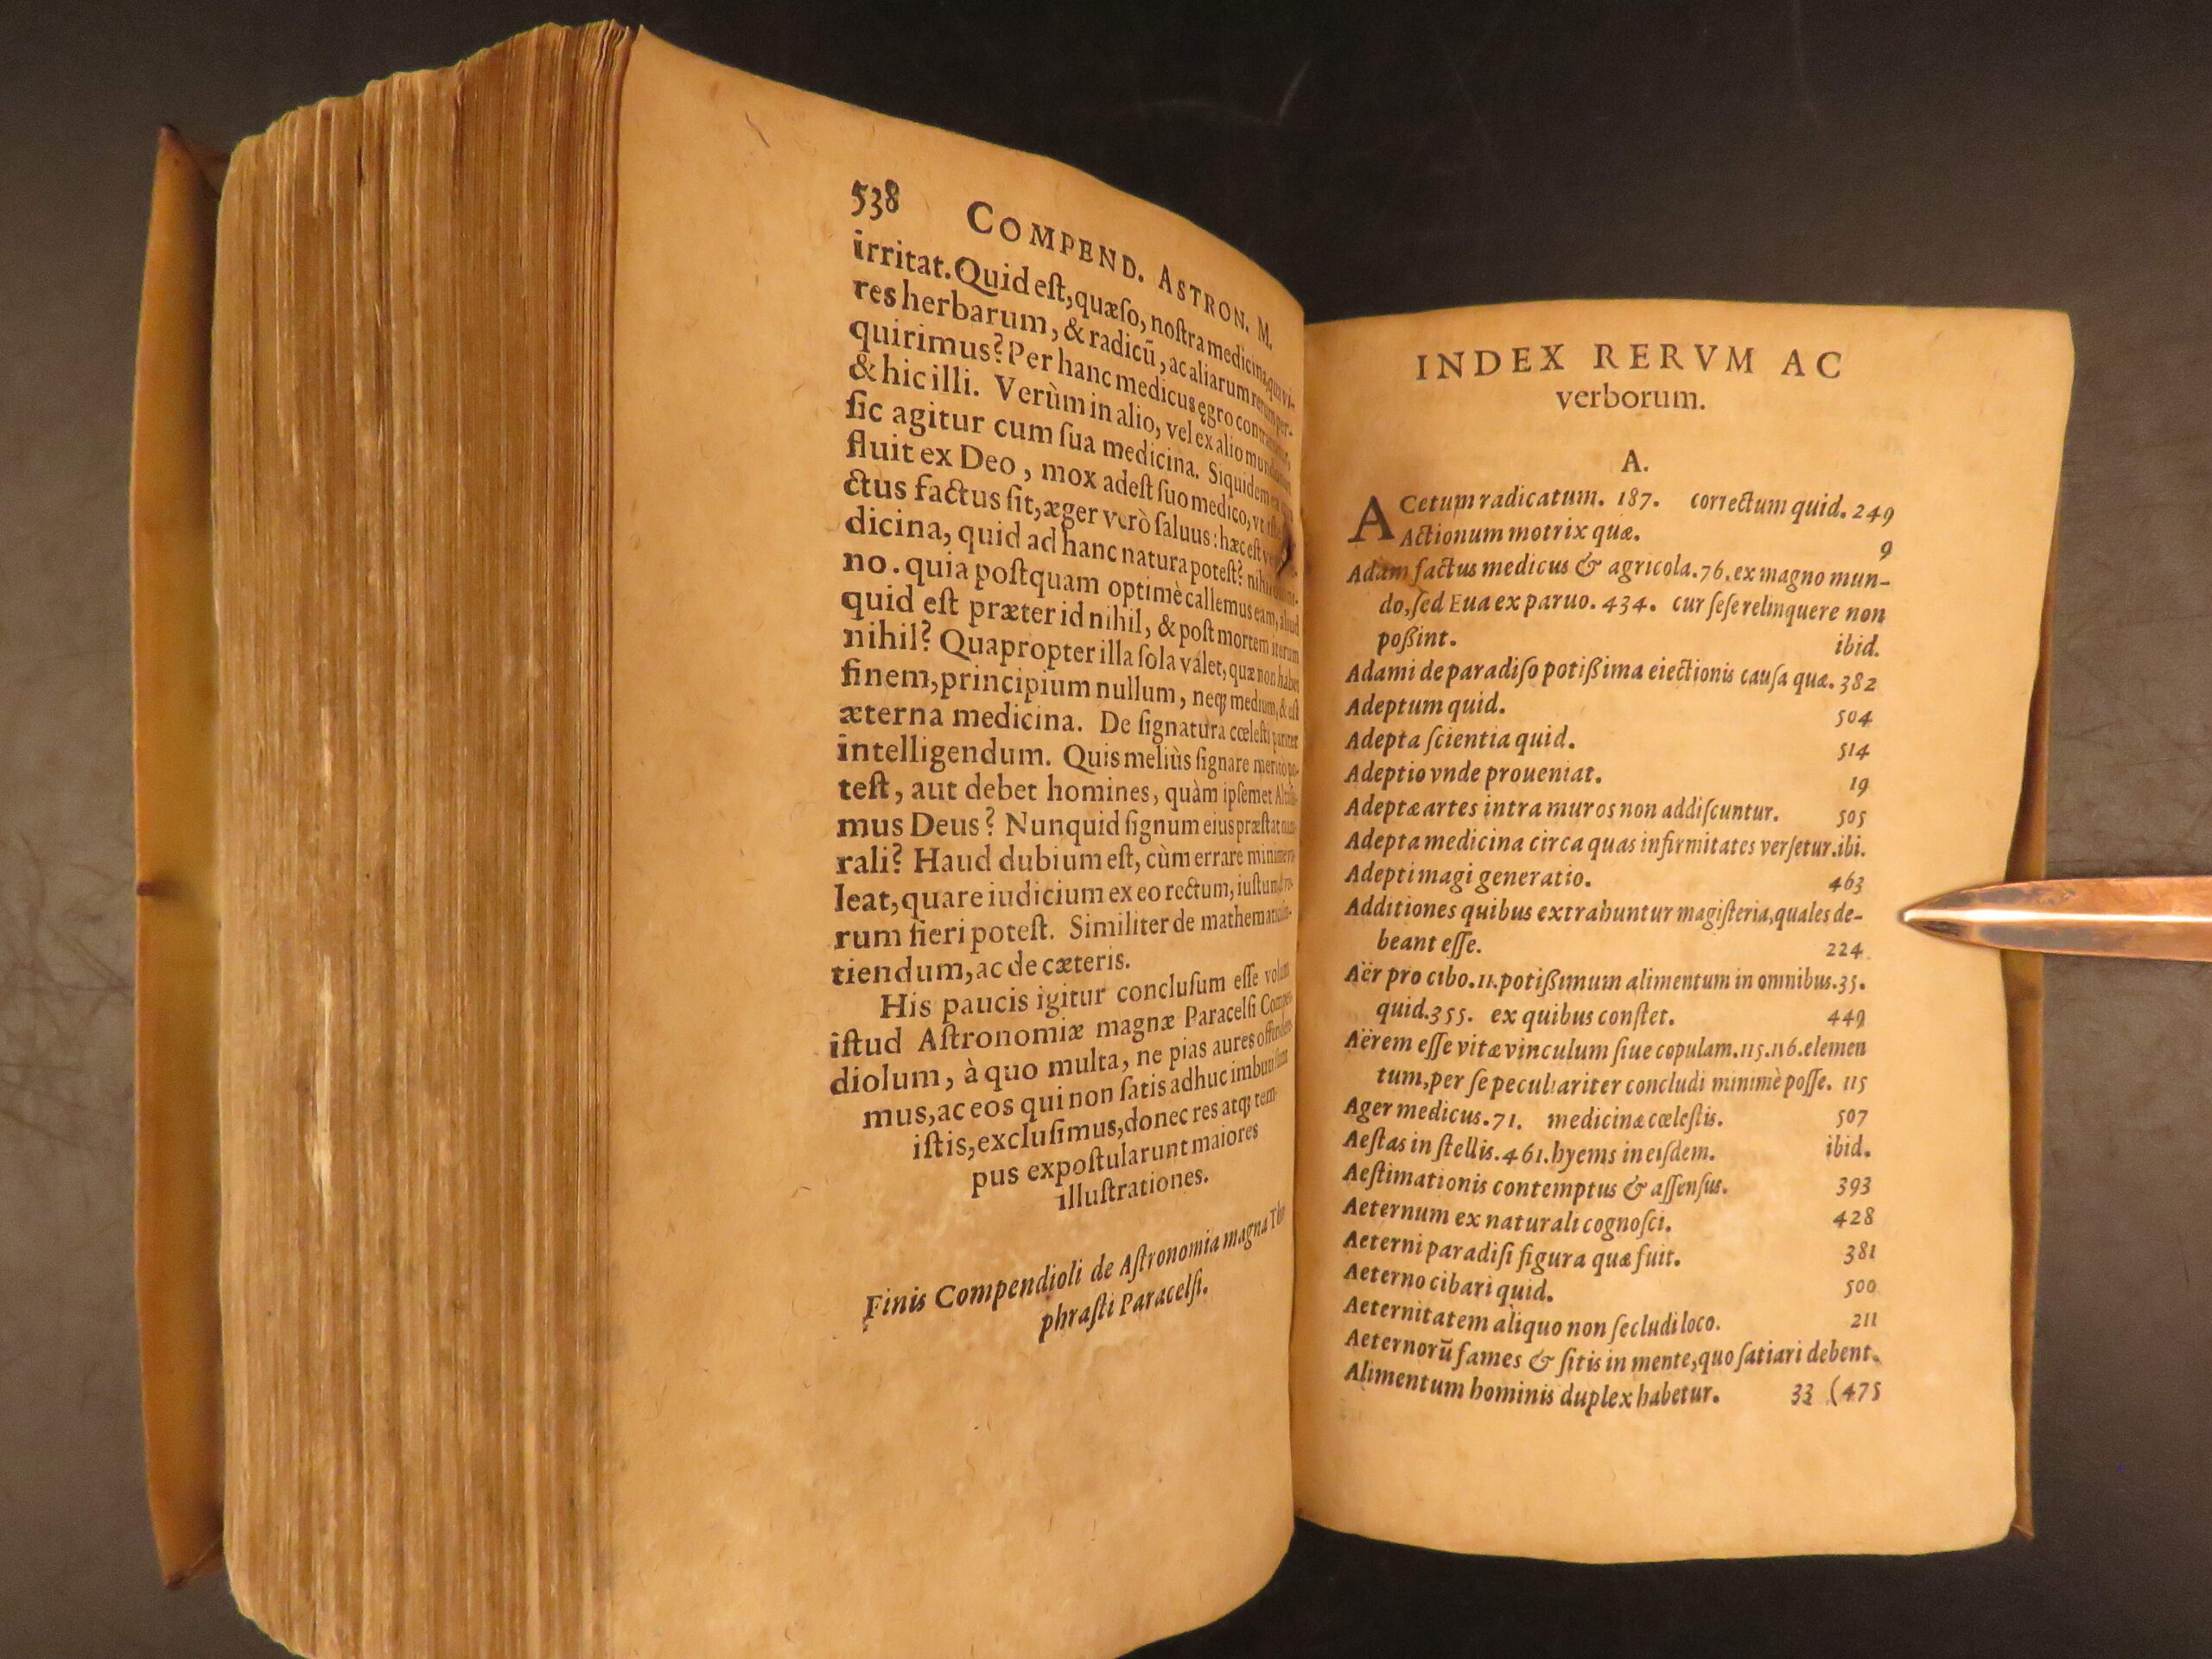 538 COMPEND. ASTRON. M.
irritat. Quid eſt, quæſo, noſtra medicina, qua vi-
res herbarum, & radicū, ac aliarum rerum per-
quirimus? Per hanc medicus ęgro
& hic illi. Verùm in alio, vel ex alio
ſic agitur cum ſua medicina. Siquidem
fluit ex Deo, mox adeſt ſuo medico, vt
ctus factus ſit, æger verò ſaluus: hæc eſt
dicina, quid ad hanc natura poteſt? nihil
no. quia poſtquam optimè callemus eam, aliud
quid eſt præter id nihil, & poſt mortem iterum
nihil? Quapropter illa ſola valet, quæ non habet
finem, principium nullum, neq; medium, & eſt
æterna medicina. De ſignatura cœleſti pariter
intelligendum. Quis meliùs ſignare meritò po-
teſt, aut debet homines, quàm ipſemet Altiſsi-
mus Deus? Nunquid ſignum eius præſtat
rali? Haud dubium eſt, cùm errare minimè
leat, quare iudicium ex eo rectum, iuſtum,
rum fieri poteſt. Similiter de
tiendum, ac de cæteris.
His paucis igitur concluſum eſſe
iſtud Aſtronomiæ magnæ Paracelſi Compen-
diolum, à quo multa, ne pias aures
mus, ac eos qui non ſatis adhuc imbuti ſunt
iſtis, excluſimus, donec res atq; tem-
pus expoſtularunt maiores
illuſtrationes.
Finis Compendioli de Aſtronomia magna
phraſti Paracelſi.
INDEX RERVM AC
verborum.
A.
ACetum radicatum. 187. correctum quid. 249
Actionum motrix quæ. 9
Adam factus medicus & agricola. 76. ex magno mun-
do, ſed Eua ex paruo. 434. cur ſeſe relinquere non
poßint. ibid.
Adami de paradiſo potißima eiectionis cauſa quæ. 382
Adeptum quid. 504
Adepta ſcientia quid. 514
Adeptio vnde proueniat. 19
Adeptæ artes intra muros non addiſcuntur. 505
Adepta medicina circa quas infirmitates verſetur. ibi.
Adepti magi generatio. 463
Additiones quibus extrahuntur magiſteria, quales de-
beant eſſe. 224
Aër pro cibo. 11. potißimum alimentum in omnibus. 35.
quid. 355. ex quibus conſtet. 449
Aërem eſſe vitæ vinculum ſiue copulam. 115. 116. elemen
tum, per ſe peculiariter concludi minimè poſſe. 115
Ager medicus. 71. medicinæ cœleſtis. 507
Aeſtas in ſtellis. 461. hyems in eiſdem. ibid.
Aeſtimationis contemptus & aſſenſus. 393
Aeternum ex naturali cognoſci. 428
Aeterni paradiſi figura quæ fuit. 381
Aeterno cibari quid. 500
Aeternitatem aliquo non ſecludi loco. 211
Aeternorū fames & ſitis in mente, quo ſatiari debent.
Alimentum hominis duplex habetur. 33 (475